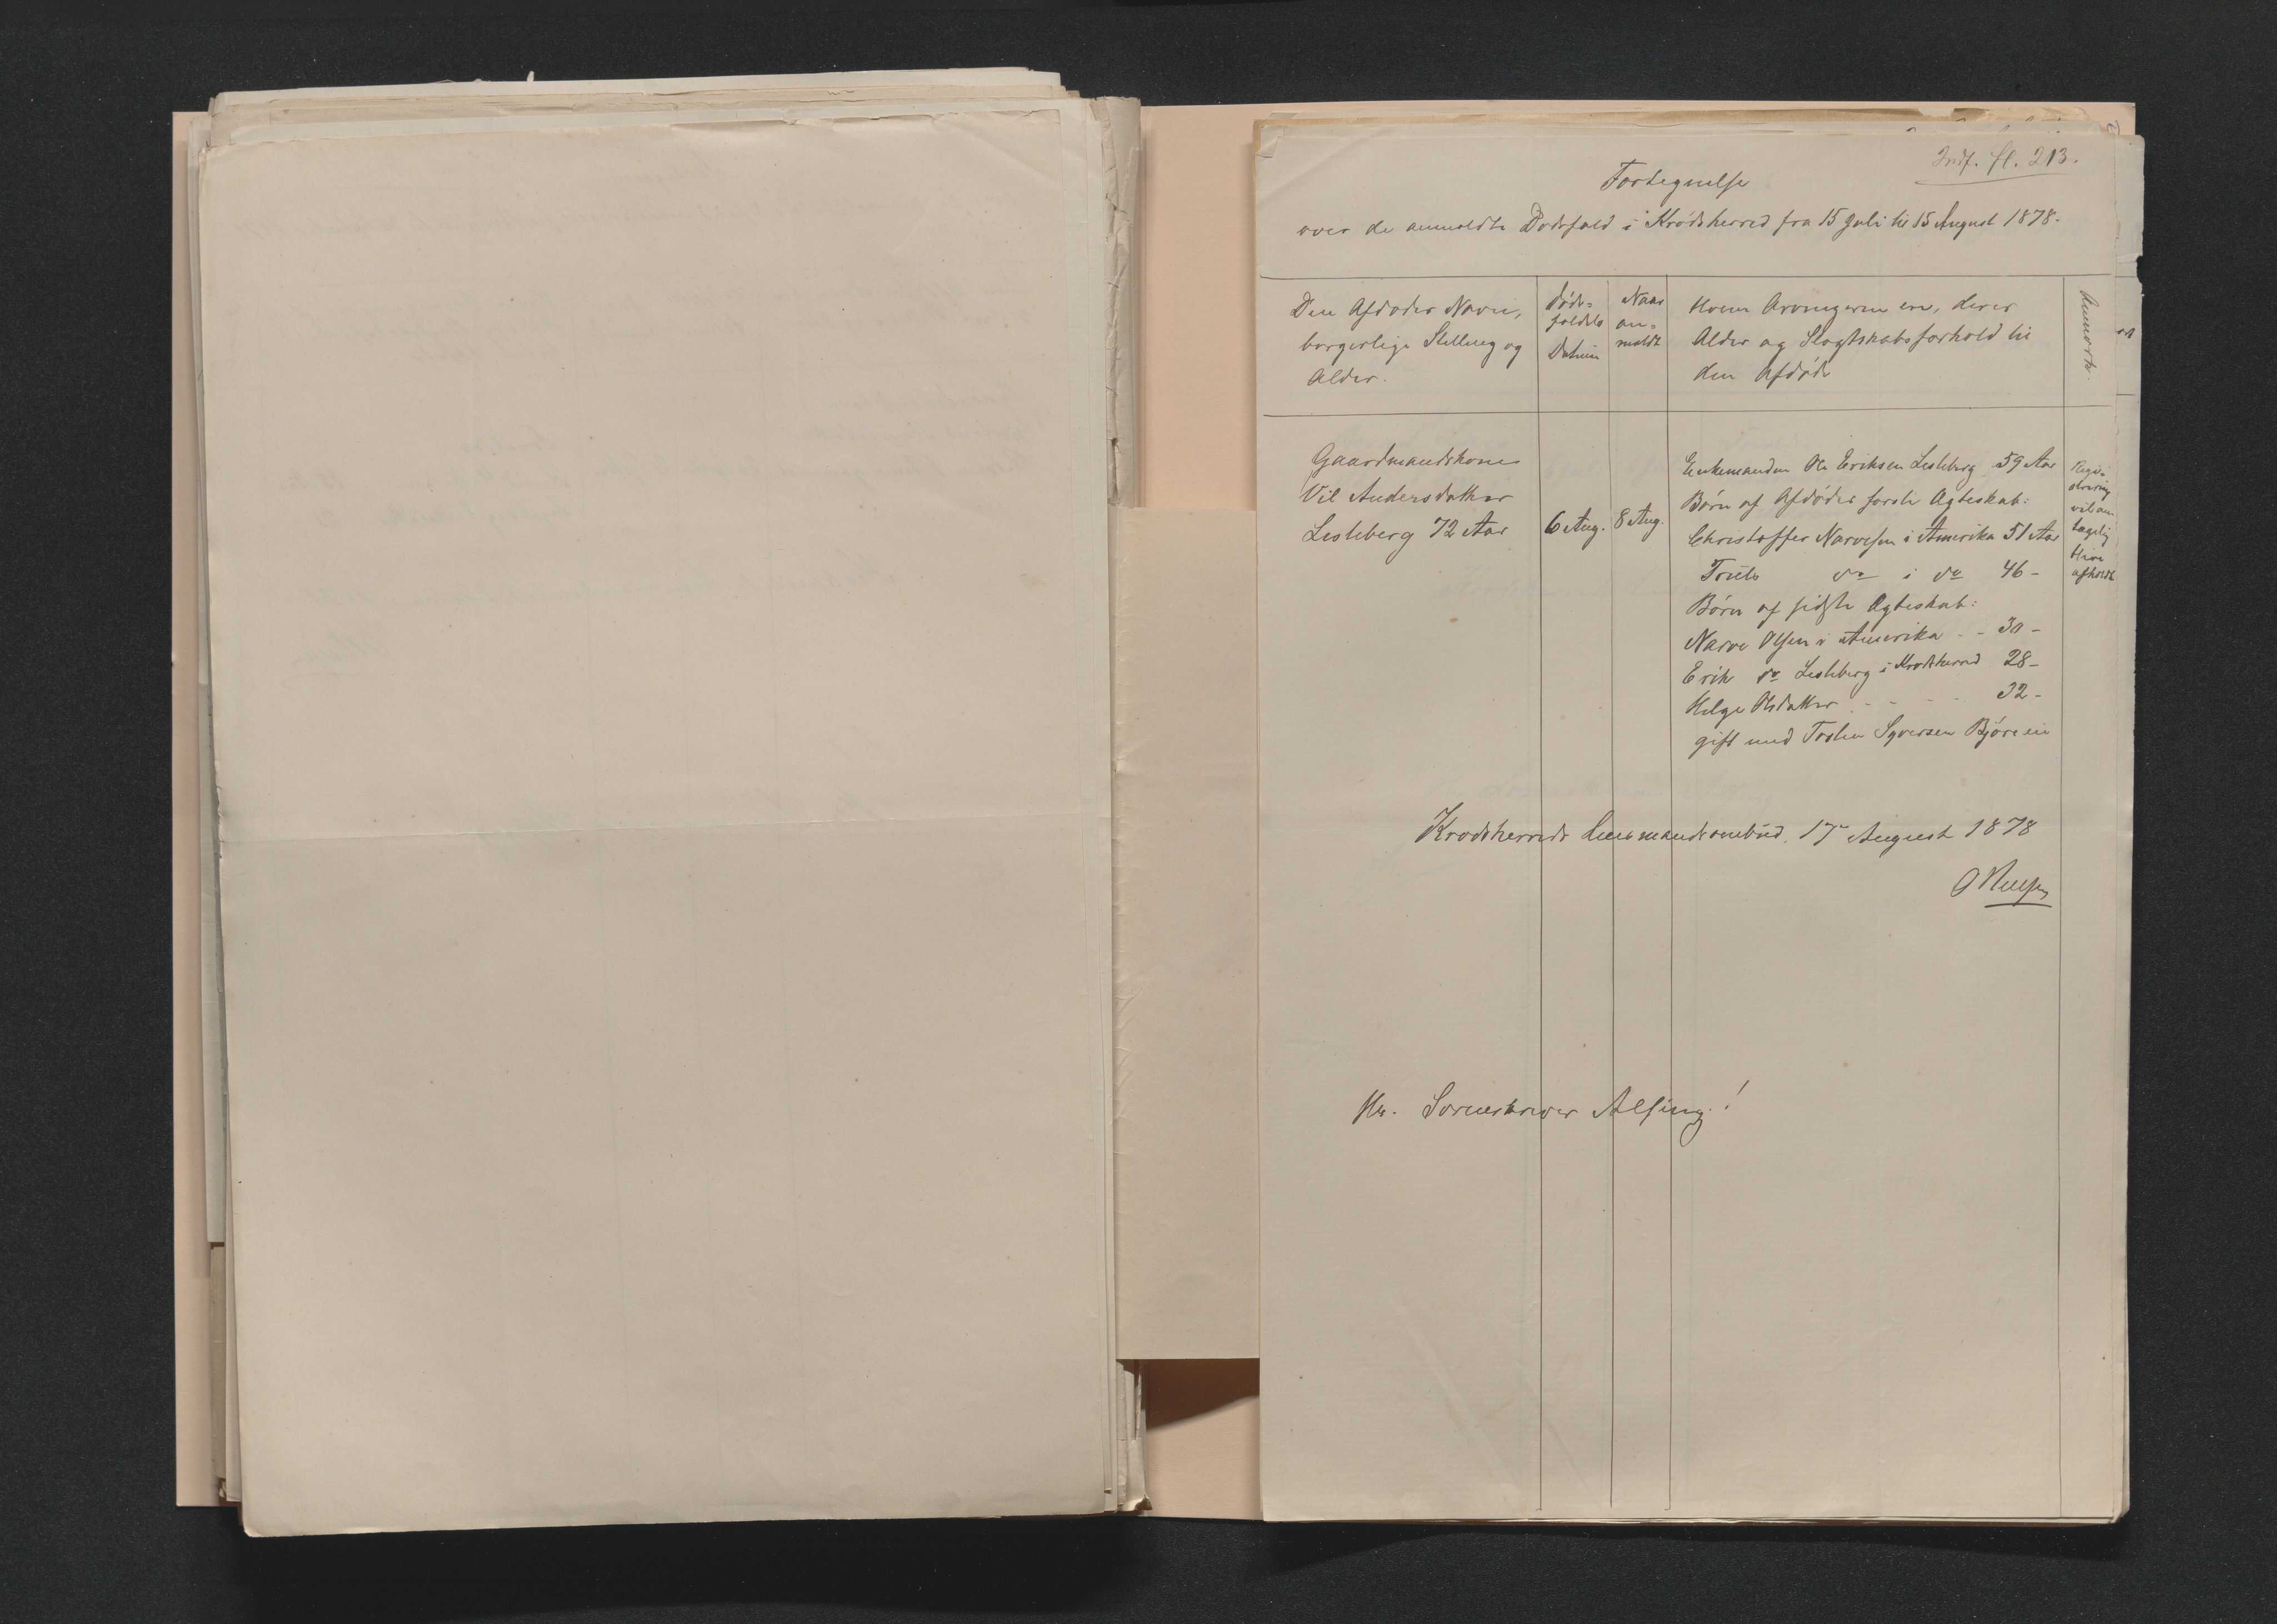 Indf. fl. 213.
Fortegnelse
over de anmeldte Dødsfald i Krødsherred fra 15 Juli til 15 August 1878.
Den Afdødes Navn,
borgerlige Stilling og
Alder.
Døds-
faldets
Datum
Naar
an-
meldt
Hvem Arvingerne ere, deres
Alder og Slægtskabsforhold til
den Afdøde
Anmærk.
Gaardmandskone
Vil Andersdatter
Lesteberg 72 Aar
6 Aug.
8 Aug.
Enkemanden Ole Eriksen Lesteberg 59 Aar
Børn af Afdødes første Ægteskab:
Christoffer Narvesen i Amerika 51 Aar
Truls do i do 46 -
Børn af sidste Ægteskab:
Narve Olsen i Amerika - - 30 -
Erik do Lesteberg i Krødsherred 28 -
Helge Olsdatter - - - - 32 -
gift med Torsten Syversen Bjøre eie
Regi-
strering
vil an-
tagelig
blive
afholdt
Krødsherreds Lensmandsombud 17 August 1878
Hr. Sorenskriver Alsing!